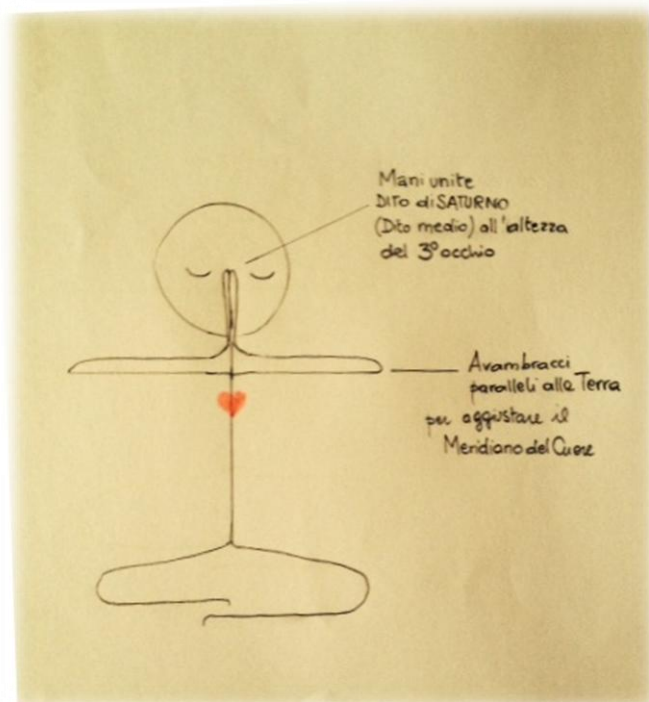 Mani unite
DITO di SATURNO
(Dito medio) all'altezza
del 3° occhio
Avambracci
paralleli alla Terra
per aggiustare il
Meridiano del Cuore